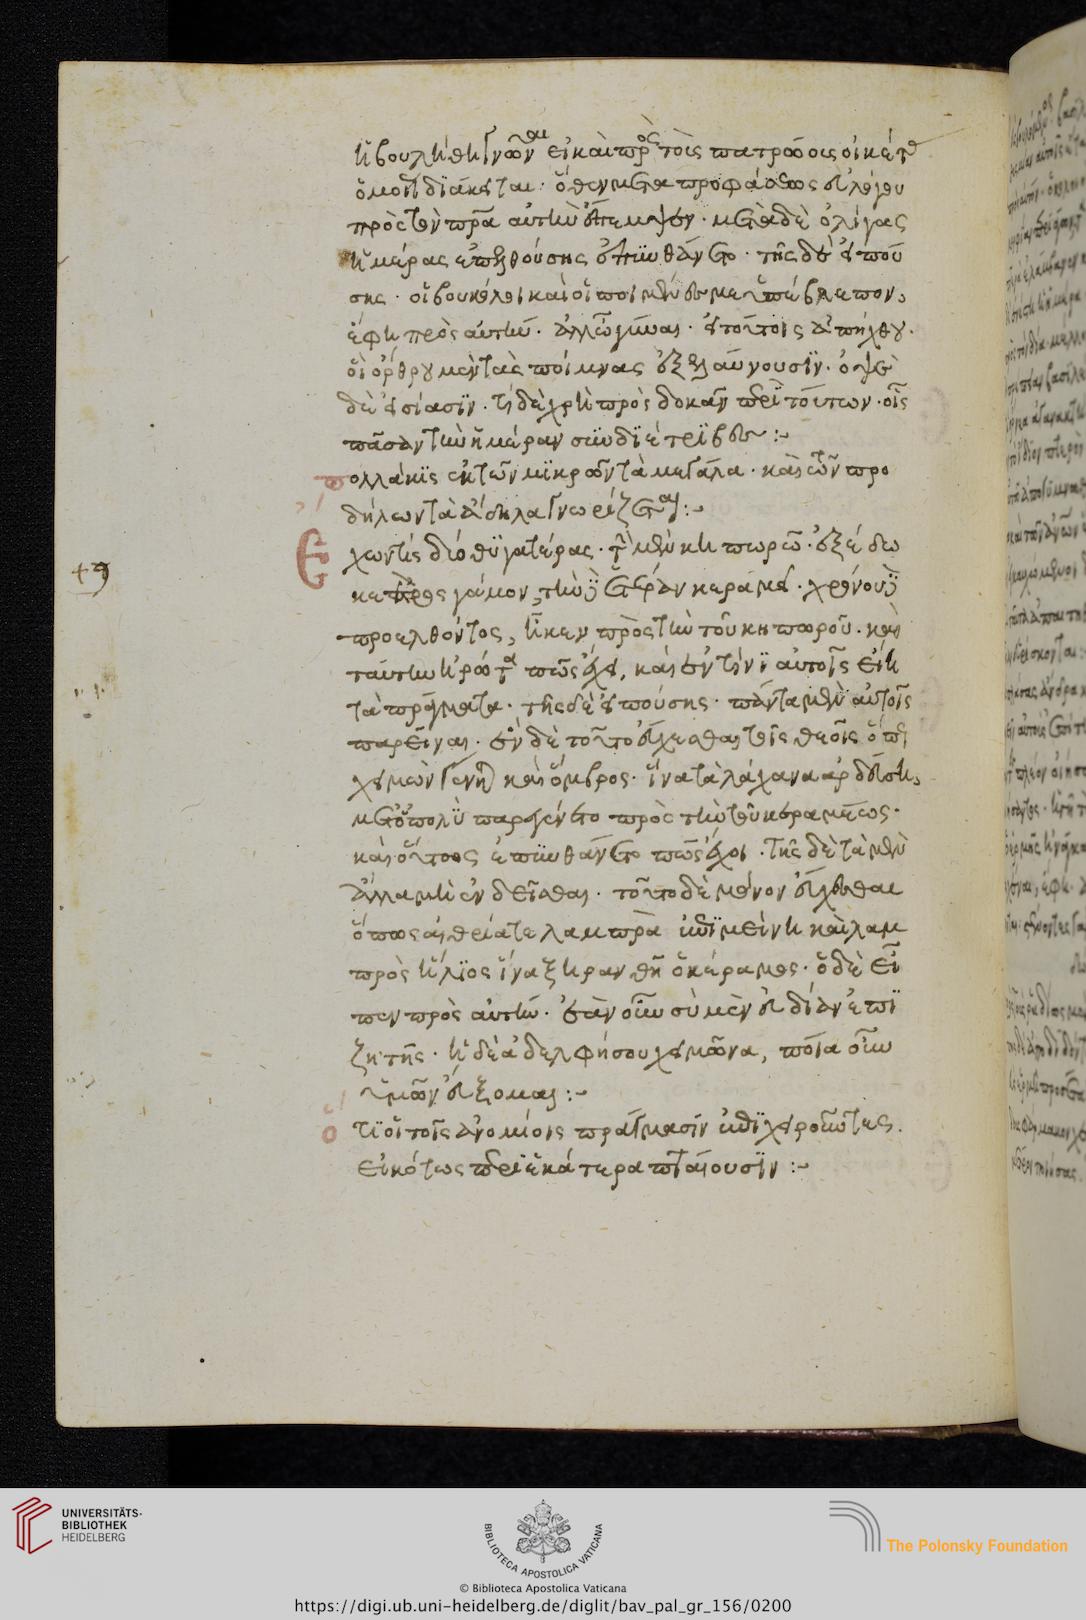 ἠβουλήθη γνῶναι εἰ καὶ πρὸς τοὺς πατρώους οἰκέτας
ὁμοίως διάκειται· ὅθεν μετὰ προφάσεως εὐλόγου
πρὸς τὸν πατέρα αὐτὴν ἔπεμψεν· μετὰ δὲ ὀλίγας
ἡμέρας ἐπελθούσης ἐπυνθάνετο· τῆς δὲ εἰπού
σης· οἱ βουκόλοι καὶ οἱ ποιμένες με ὑπέβλεπον,
ἔφη πρὸς αὐτήν· ἀλλ' ὦ γύναι· εἰ τούτοις ἀπήχθου·
οἳ ὄρθρου μὲν τὰς ποίμνας ἐξελαύνουσιν· ὀψὲ
δὲ εἰσίασιν· τί δὲ χρὴ προσδοκᾶν περὶ τούτων· οἷς
πᾶσαν τὴν ἡμέραν συνδιέτριβες :~
πολλάκις ἐκ τῶν μικρῶν τὰ μεγάλα· καὶ ἐκ τῶν προ
δήλων τὰ ἄδηλα γνωρίζεται :~
Ἔχων τίς δύο θυγατέρας· τὴν μὲν κηπωρῷ· ἐξέδω
κε πρὸς γάμον, τὴν δ' ἑτέραν κεραμεῖ· χρόνου δὲ
προελθόντος, ἧκεν πρὸς τὴν τοῦ κηπωροῦ· καὶ
ταύτην ἠρώτα πῶς ἔχει, καὶ ἐν τίνι αὐτοῖς εἴη
τὰ πράγματα· τῆς δὲ εἰπούσης· πάντα μὲν αὐτοῖς
παρεῖναι· ἓν δὲ τοῦτο εὔχεσθαι τοῖς θεοῖς ὅπως
χειμὼν γένηται καὶ ὄμβρος· ἵνα τὰ λάχανα ἀρδευθῇ,
μετ' οὐ πολὺ παρεγένετο πρὸς τὴν τοῦ κεραμέως·
καὶ οὕτως ἐπυνθάνετο πῶς ἔχοι· τῆς δὲ τὰ μὲν
ἄλλα μὴ ἐνδεῖσθαι· τοῦτο δὲ μόνον εὔχεσθαι
ὅπως αἰθρία τε λαμπρὰ ἐπιμείνῃ καὶ λαμ
πρὸς ἥλιος ἵνα ξηρανθῇ ὁ κέραμος· ὁ δὲ εἶ
πεν πρὸς αὐτήν· ἐὰν οὖν σὺ μὲν εὐδίαν ἐπι
ζητῇς· ἡ δὲ ἀδελφή σου χειμῶνα, ποῖα οὖν
ὑμῶν εὔξομαι :~
Ὅτι οἱ τοῖς ἀνομίοις πράγμασιν ἐπιχειροῦντες·
εἰκότως περὶ ἑκάτερα πταίουσιν :~
UNIVERSITÄTS-
BIBLIOTHEK
HEIDELBERG
BIBLIOTECA APOSTOLICA VATICANA
The Polonsky Foundation
© Biblioteca Apostolica Vaticana
https://digi.ub.uni-heidelberg.de/diglit/bav_pal_gr_156/0200